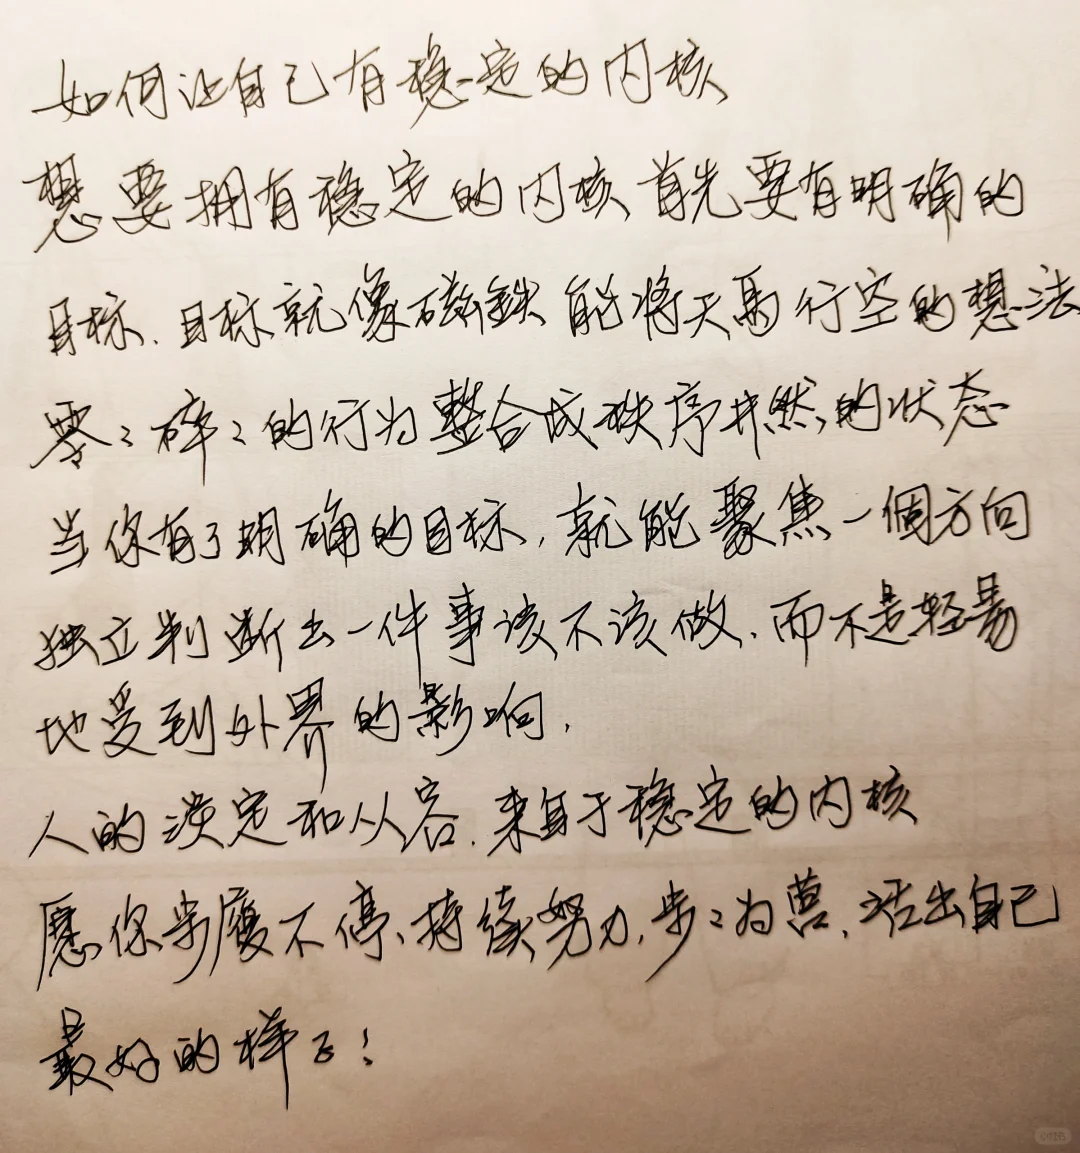 如何让自己有稳定的内核
想要拥有稳定的内核、首先要有明确的
目标、目标就像磁鉄 能将天马行空的想法、
零々碎々的行为整合成秩序井然的状态
当你有了明确的目标,就能聚焦一個方向
独立判断出一件事该不该做、而不是轻易
地受到外界的影响,
人的淡定和从容.来自于稳定的内核
愿你步履不停、持续努力,步々为营、活出自己
最好的样子!